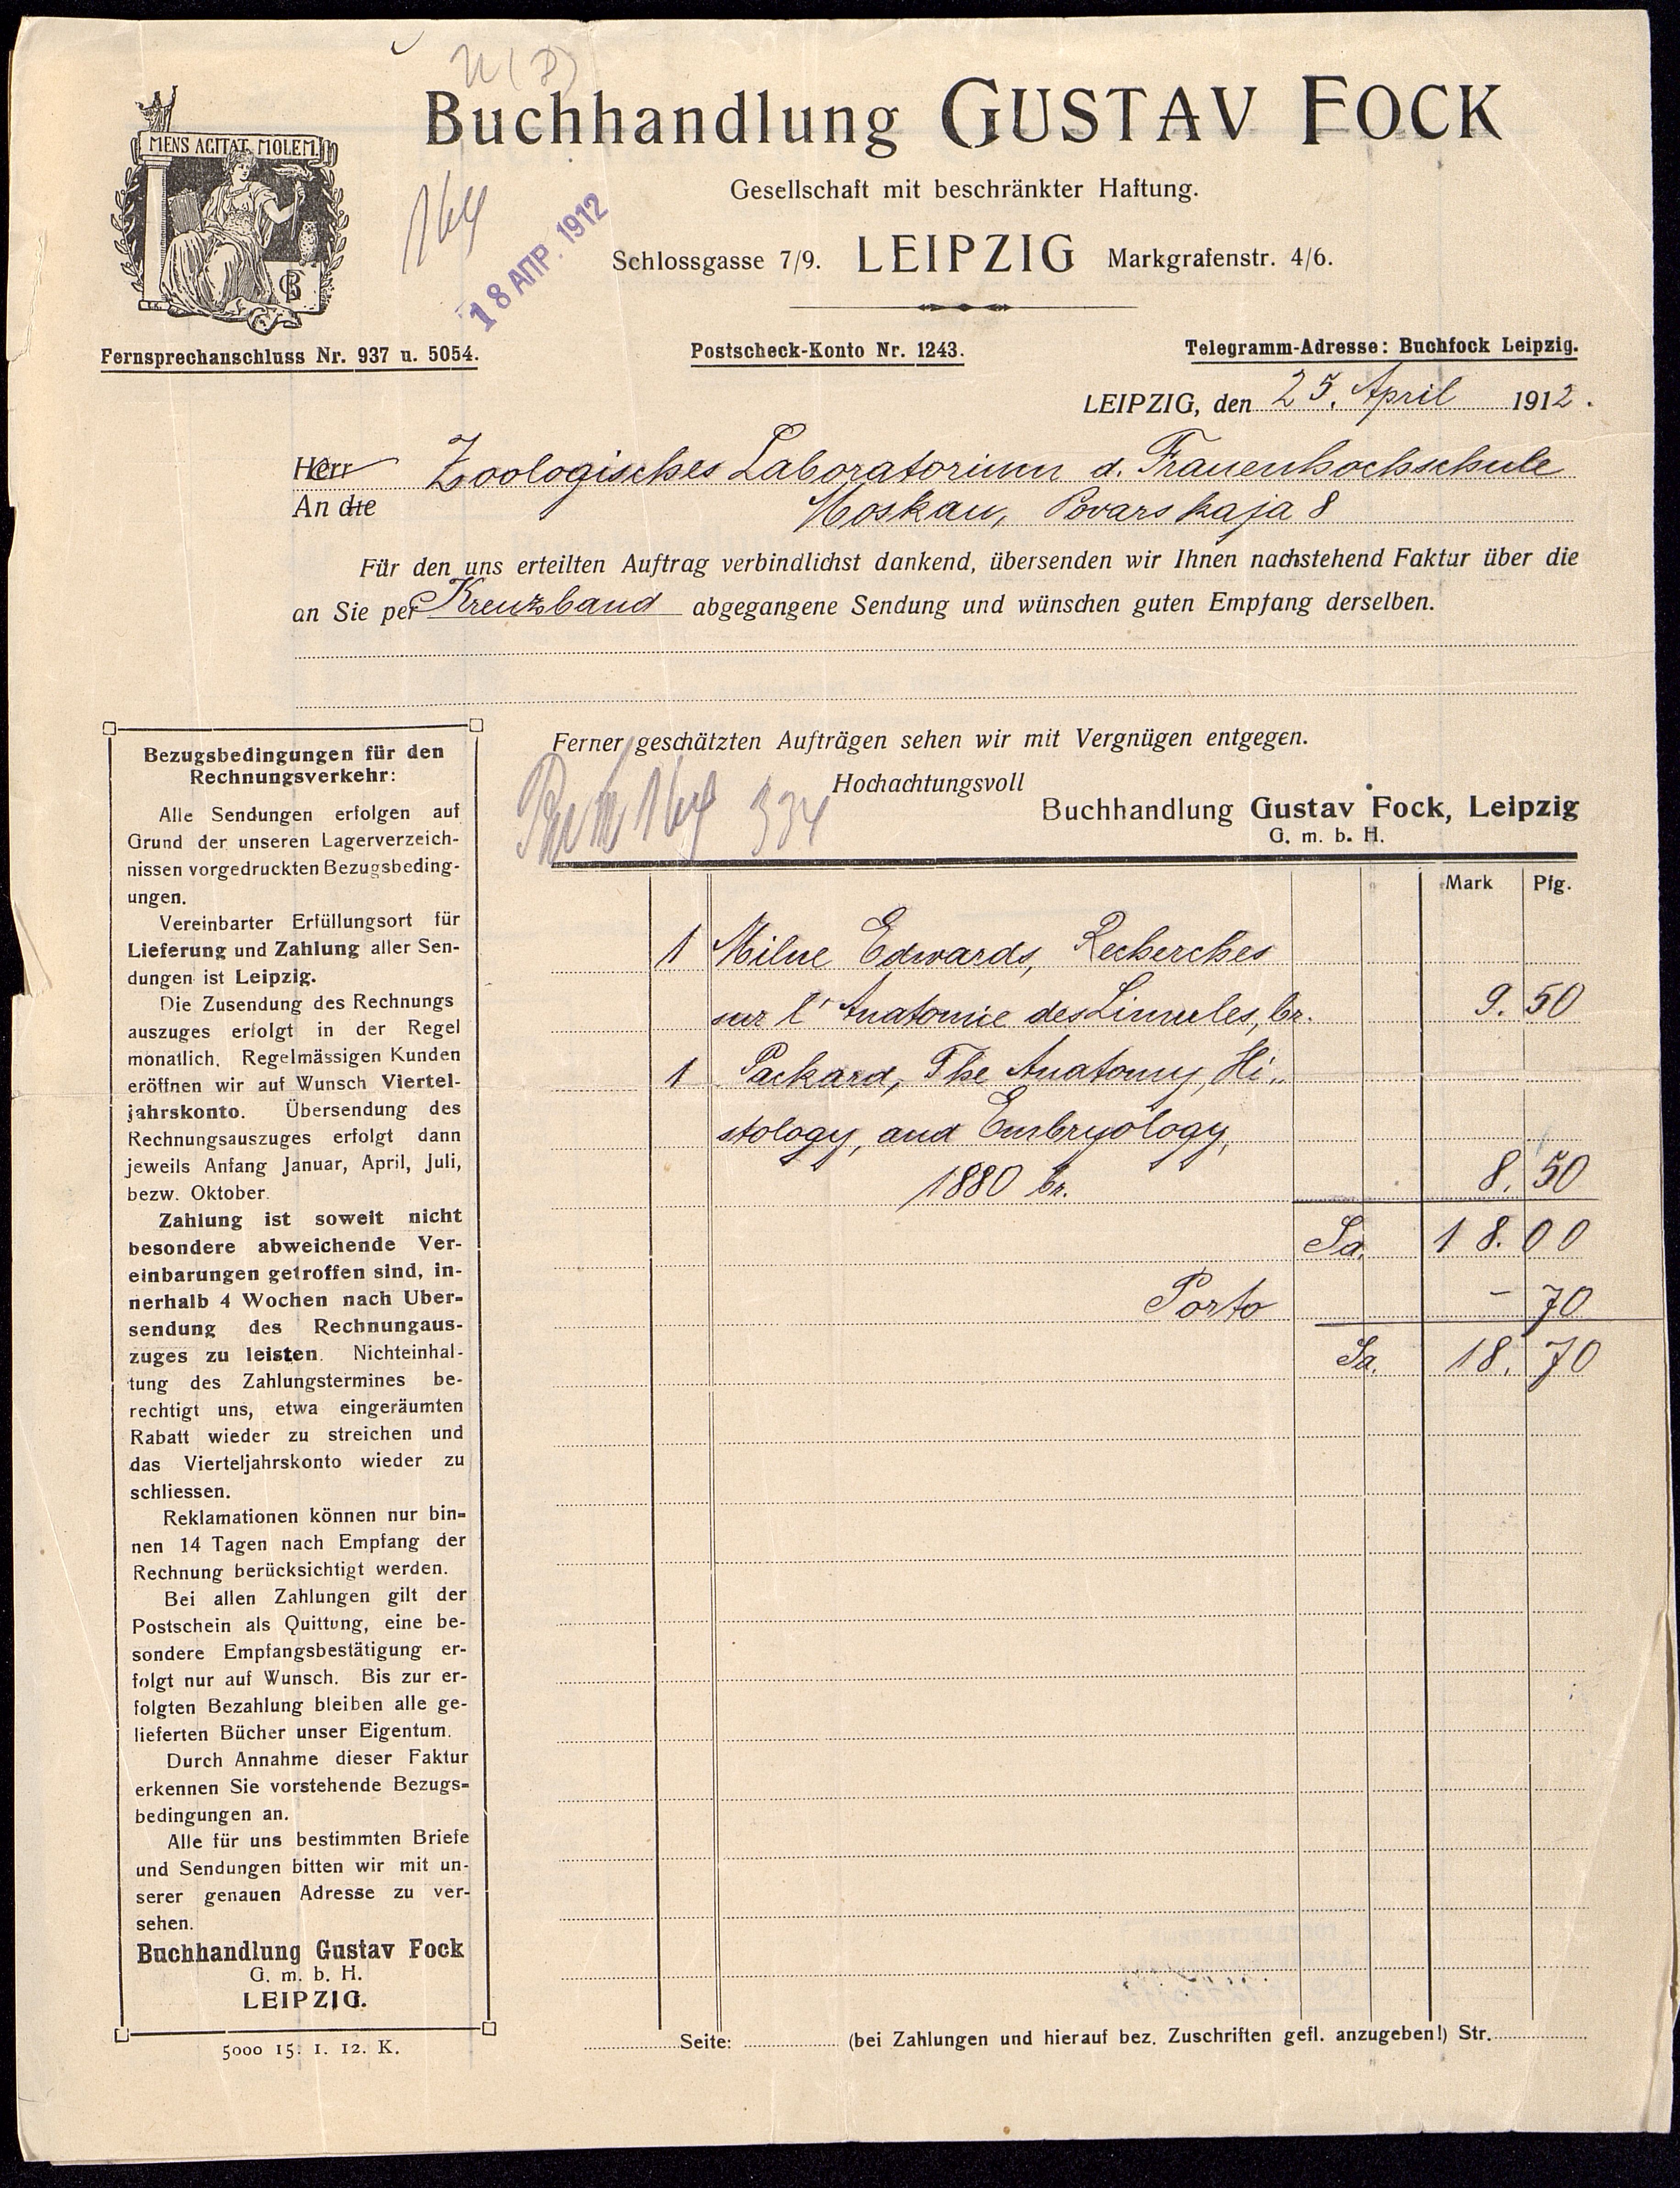 Buchhandlung GUSTAV FOCK
MENS AGITAT MOLEM.
Gesellschaft mit beschränkter Haftung.
164
18 АПР. 1912
Schlossgasse 7/9. LEIPZIG Markgrafenstr. 4/6.
Fernsprechanschluss Nr. 937 u. 5054.
Postscheck-Konto Nr. 1243.
Telegramm-Adresse: Buchfock Leipzig.
LEIPZIG, den 25. April 1912.
Herr Zoologisches Laboratorium d. Frauenhochschule
An die Moskau, Povarskaja 8
Für den uns erteilten Auftrag verbindlichst dankend, übersenden wir Ihnen nachstehend Faktur über die
an Sie per Kreuzband abgegangene Sendung und wünschen guten Empfang derselben.
Ferner geschätzten Aufträgen sehen wir mit Vergnügen entgegen.
Hochachtungsvoll
164 334
Buchhandlung Gustav Fock, Leipzig
G. m. b. H.
Mark Pfg.
1 Milne Edwards, Recherches
sur l'Anatomie des Limules, br. 9. 50
1 Packard, The Anatomy, Hi-
stology, and Embryology,
1880 br. 8. 50
Sa. 18. 00
Porto – 70
Sa. 18. 70
Bezugsbedingungen für den
Rechnungsverkehr:
Alle Sendungen erfolgen auf
Grund der unseren Lagerverzeich-
nissen vorgedruckten Bezugsbeding-
ungen.
Vereinbarter Erfüllungsort für
Lieferung und Zahlung aller Sen-
dungen ist Leipzig.
Die Zusendung des Rechnungs
auszuges erfolgt in der Regel
monatlich. Regelmässigen Kunden
eröffnen wir auf Wunsch Viertel-
jahrskonto. Übersendung des
Rechnungsauszuges erfolgt dann
jeweils Anfang Januar, April, Juli,
bezw. Oktober.
Zahlung ist soweit nicht
besondere abweichende Ver-
einbarungen getroffen sind, in-
nerhalb 4 Wochen nach Uber-
sendung des Rechnungaus-
zuges zu leisten. Nichteinhal-
tung des Zahlungstermines be-
rechtigt uns, etwa eingeräumten
Rabatt wieder zu streichen und
das Vierteljahrskonto wieder zu
schliessen.
Reklamationen können nur bin-
nen 14 Tagen nach Empfang der
Rechnung berücksichtigt werden.
Bei allen Zahlungen gilt der
Postschein als Quittung, eine be-
sondere Empfangsbestätigung er-
folgt nur auf Wunsch. Bis zur er-
folgten Bezahlung bleiben alle ge-
lieferten Bücher unser Eigentum.
Durch Annahme dieser Faktur
erkennen Sie vorstehende Bezugs-
bedingungen an.
Alle für uns bestimmten Briefe
und Sendungen bitten wir mit un-
serer genauen Adresse zu ver-
sehen.
Buchhandlung Gustav Fock
G. m. b. H.
LEIPZIG.
5000 15. 1. 12. K.
Seite: (bei Zahlungen und hierauf bez. Zuschriften gefl. anzugeben!) Str.